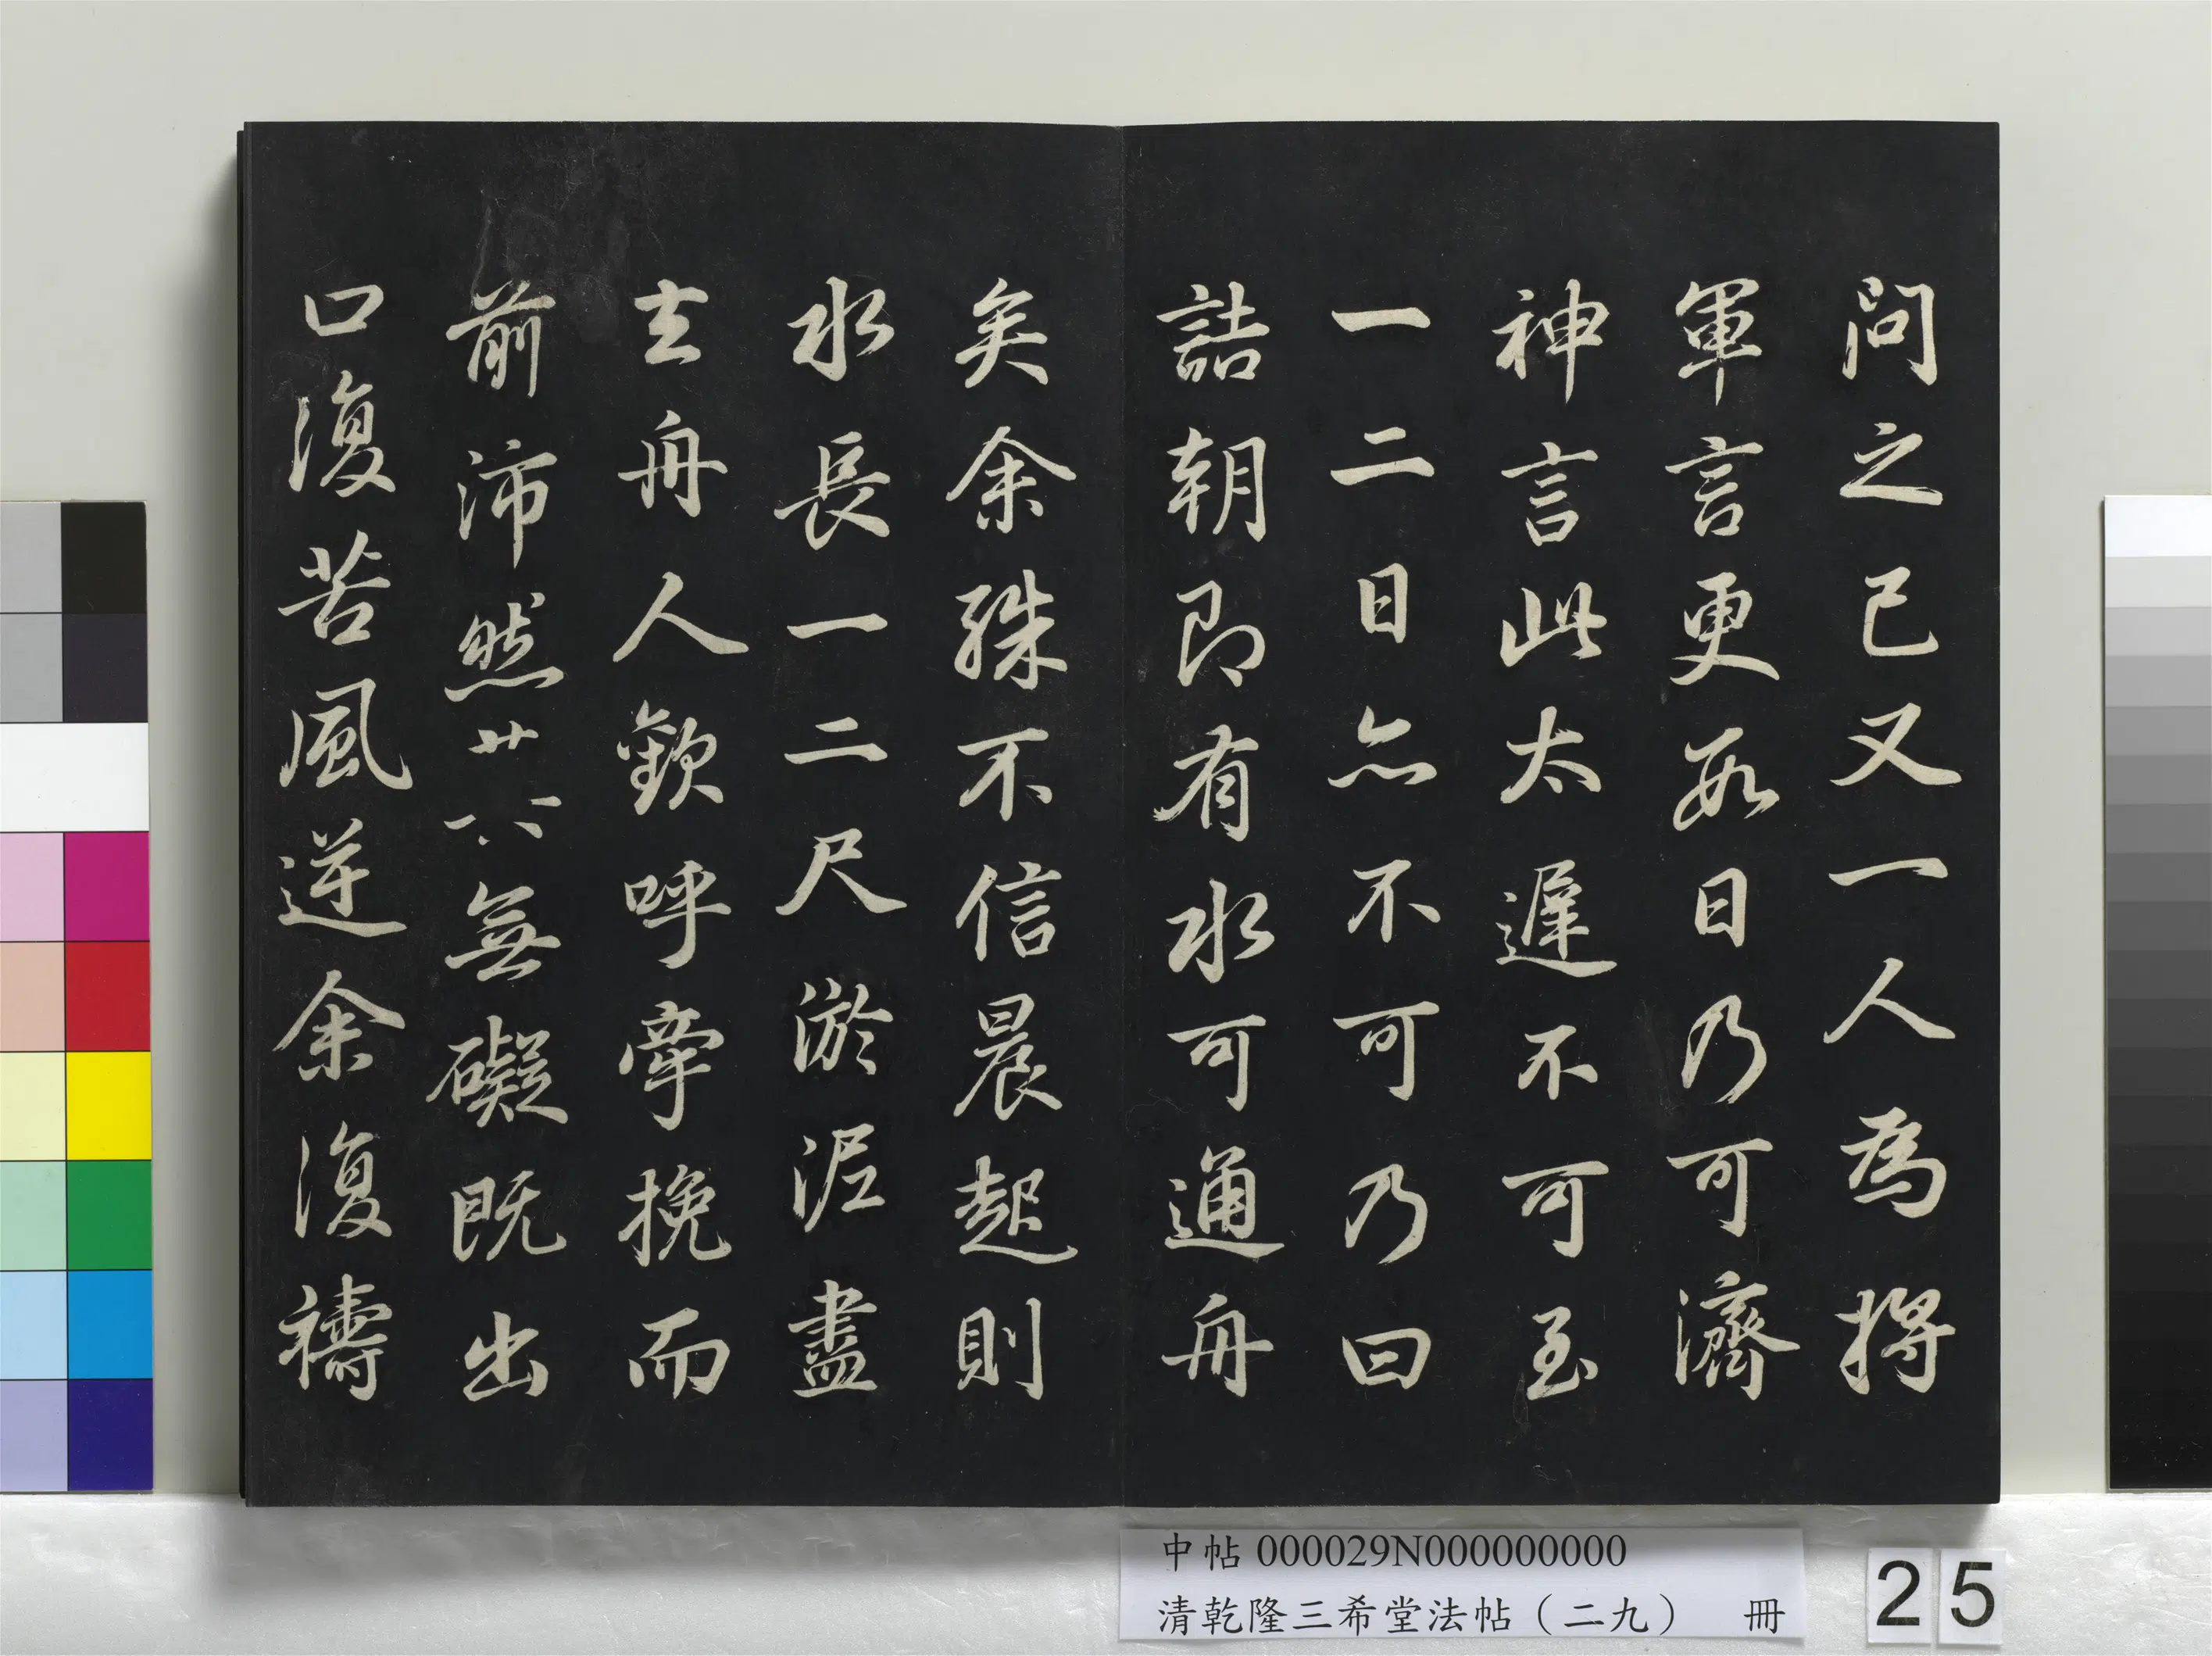 問之已又一人為將
軍言更數日乃可濟
神言此太遲不可至
一二日亦不可乃曰
詰朝即有水可通舟
矣余殊不信晨起則
水長一二尺淤泥盡
去舟人歡呼牽挽而
前沛然廿八無礙既出
口復苦風逆余復禱
中帖 000029N000000000
清乾隆三希堂法帖(二九) 冊
25